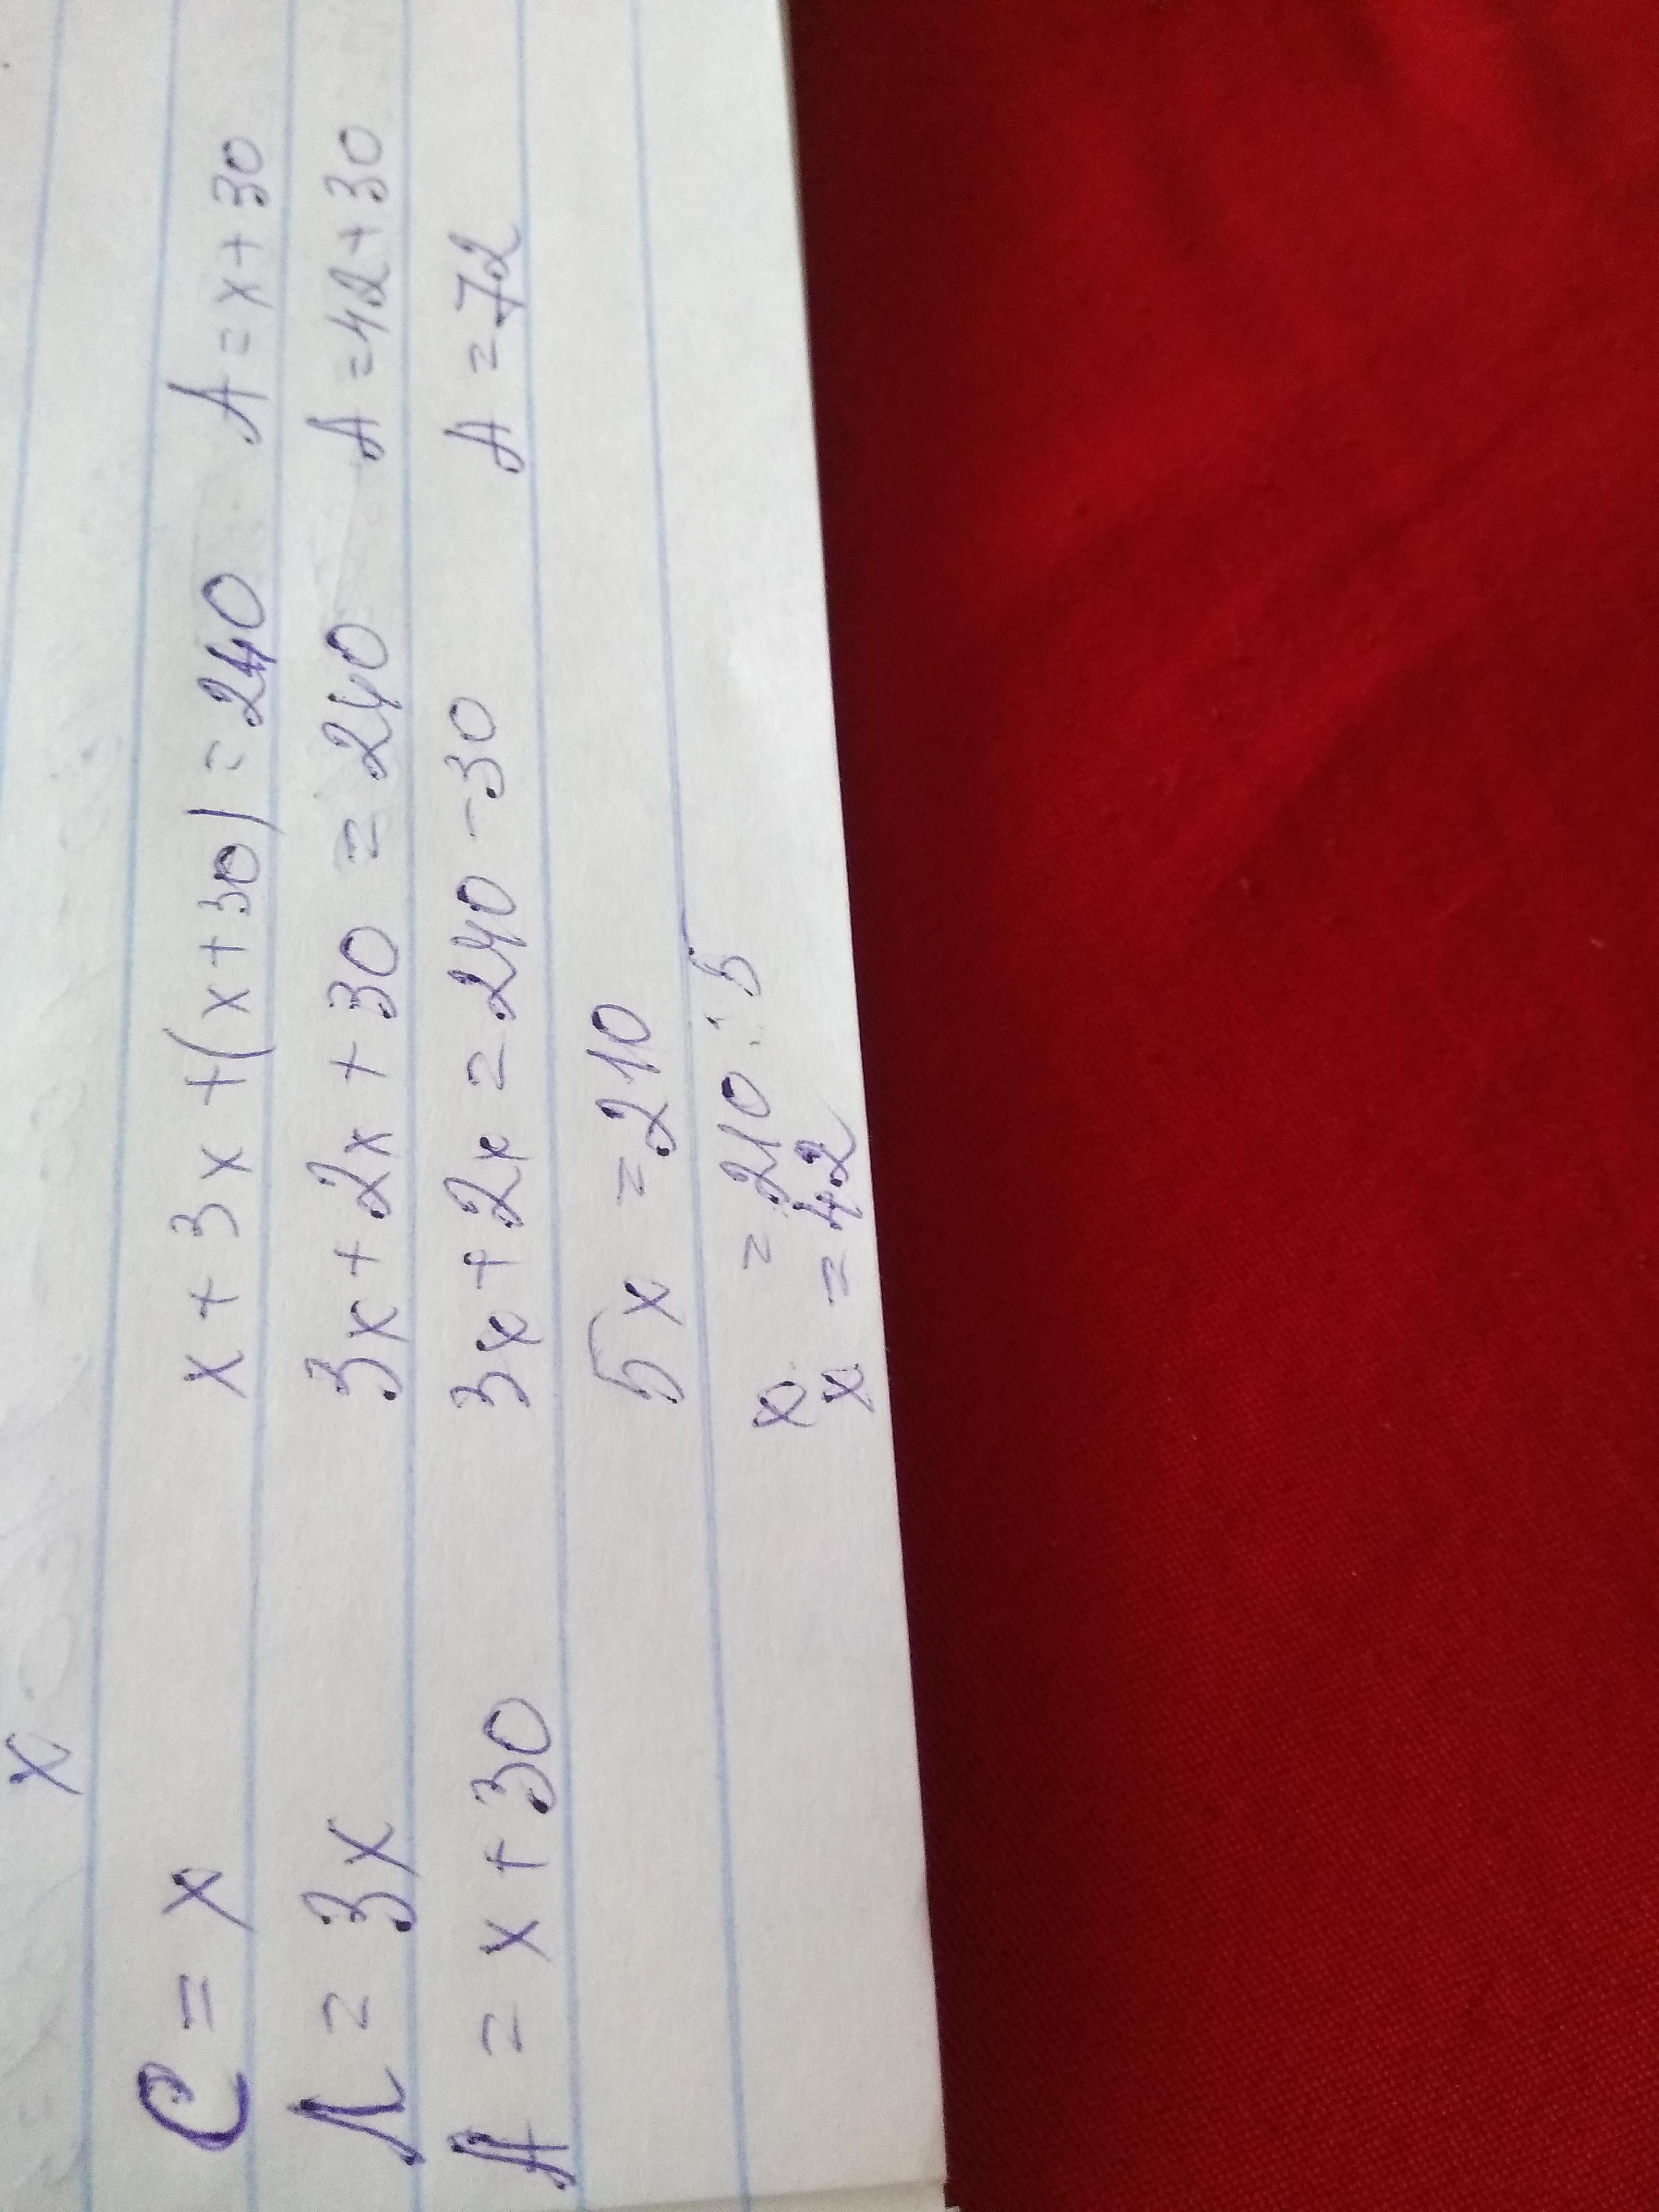 x
C = x    x + 3x + (x + 30) = 240    A = x + 30
Л = 3x    3x + 2x + 30 = 240    A = 42 + 30
A = x + 30    3x + 2x = 240 - 30    A = 72
5x = 210
x = 210 : 5
x = 42